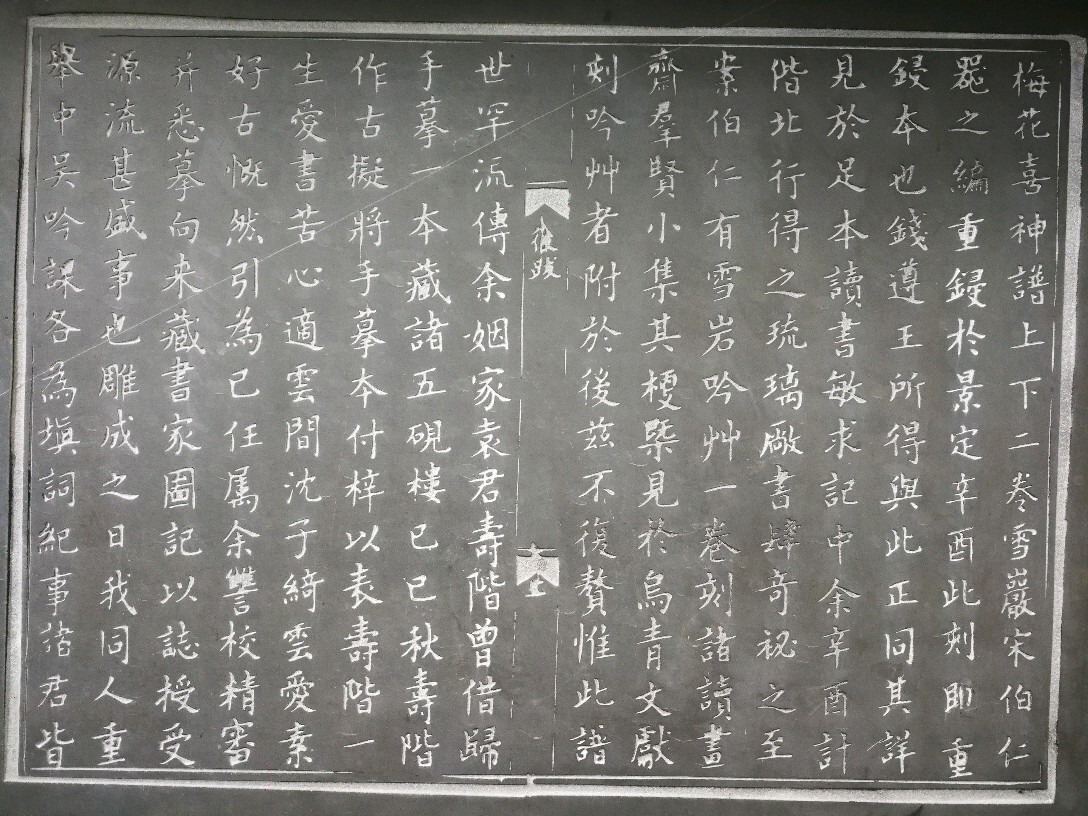 梅花喜神譜上下二卷雪巖宋伯仁
器之編重鋟於景定辛酉此刻即重
鋟本也錢遵王所得與此正同其詳
見於足本讀書敏求記中余辛酉計
偕北行得之琉璃廠書肆奇祕之至
案伯仁有雪岩吟艸一卷刻諸讀畫
齋羣賢小集其梗槩見於烏青文獻
刻吟艸者附於後茲不復贅惟此譜
後跋
世罕流傳余姻家袁君壽階曾借歸
手摹一本藏諸五硯樓己巳秋壽階
作古擬將手摹本付梓以表壽階一
生愛書苦心適雲間沈子綺雲愛素
好古慨然引為己任属余讐校精審
并悉摹向来藏書家圖記以誌授受
源流甚盛事也雕成之日我同人重
舉中吴吟課各為填詞紀事諸君皆